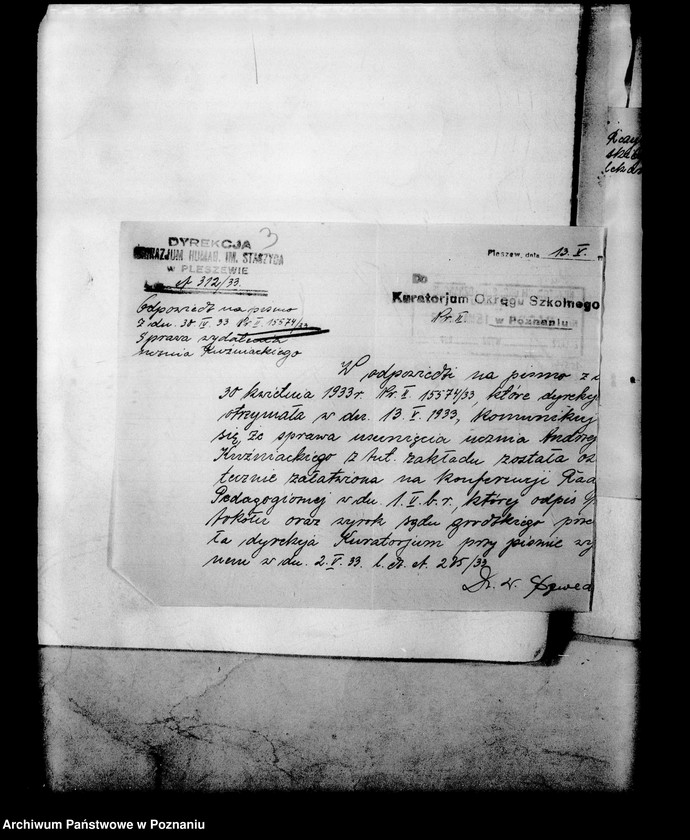 3
DYREKCJA
GIMNAZJUM HUMAN. IM. STASZYCA
W PLESZEWIE
312/33.
Odpowiedź na pismo
z dn. 30 IV. 33 Nr. II 15574/33
Sprawa wydalenia
ucznia Kuźniackiego
Pleszew, dnia 13.V.
Do
Kuratorjum Okręgu Szkolnego
Nr. II
w Poznaniu
W odpowiedzi na pismo z
30 kwietnia 1933 r. Nr. II 15574/33, które dyrekcj
otrzymała w dn. 13. V. 1933, komunikuj
się, że sprawa usunięcia ucznia Andrzej
Kuźniackiego z tut. zakładu została os
tecznie załatwiona na konferencji Rad
Pedagogicznej w du 1. V. b. r., której odpis
tokółu oraz wyrok sądu grodzkiego prze
ła dyrekcja Kuratorjum przy piśmie wy
nem w dn. 2. V. 33. 285/33
Dr. W.
Archiwum Państwowe w Poznaniu